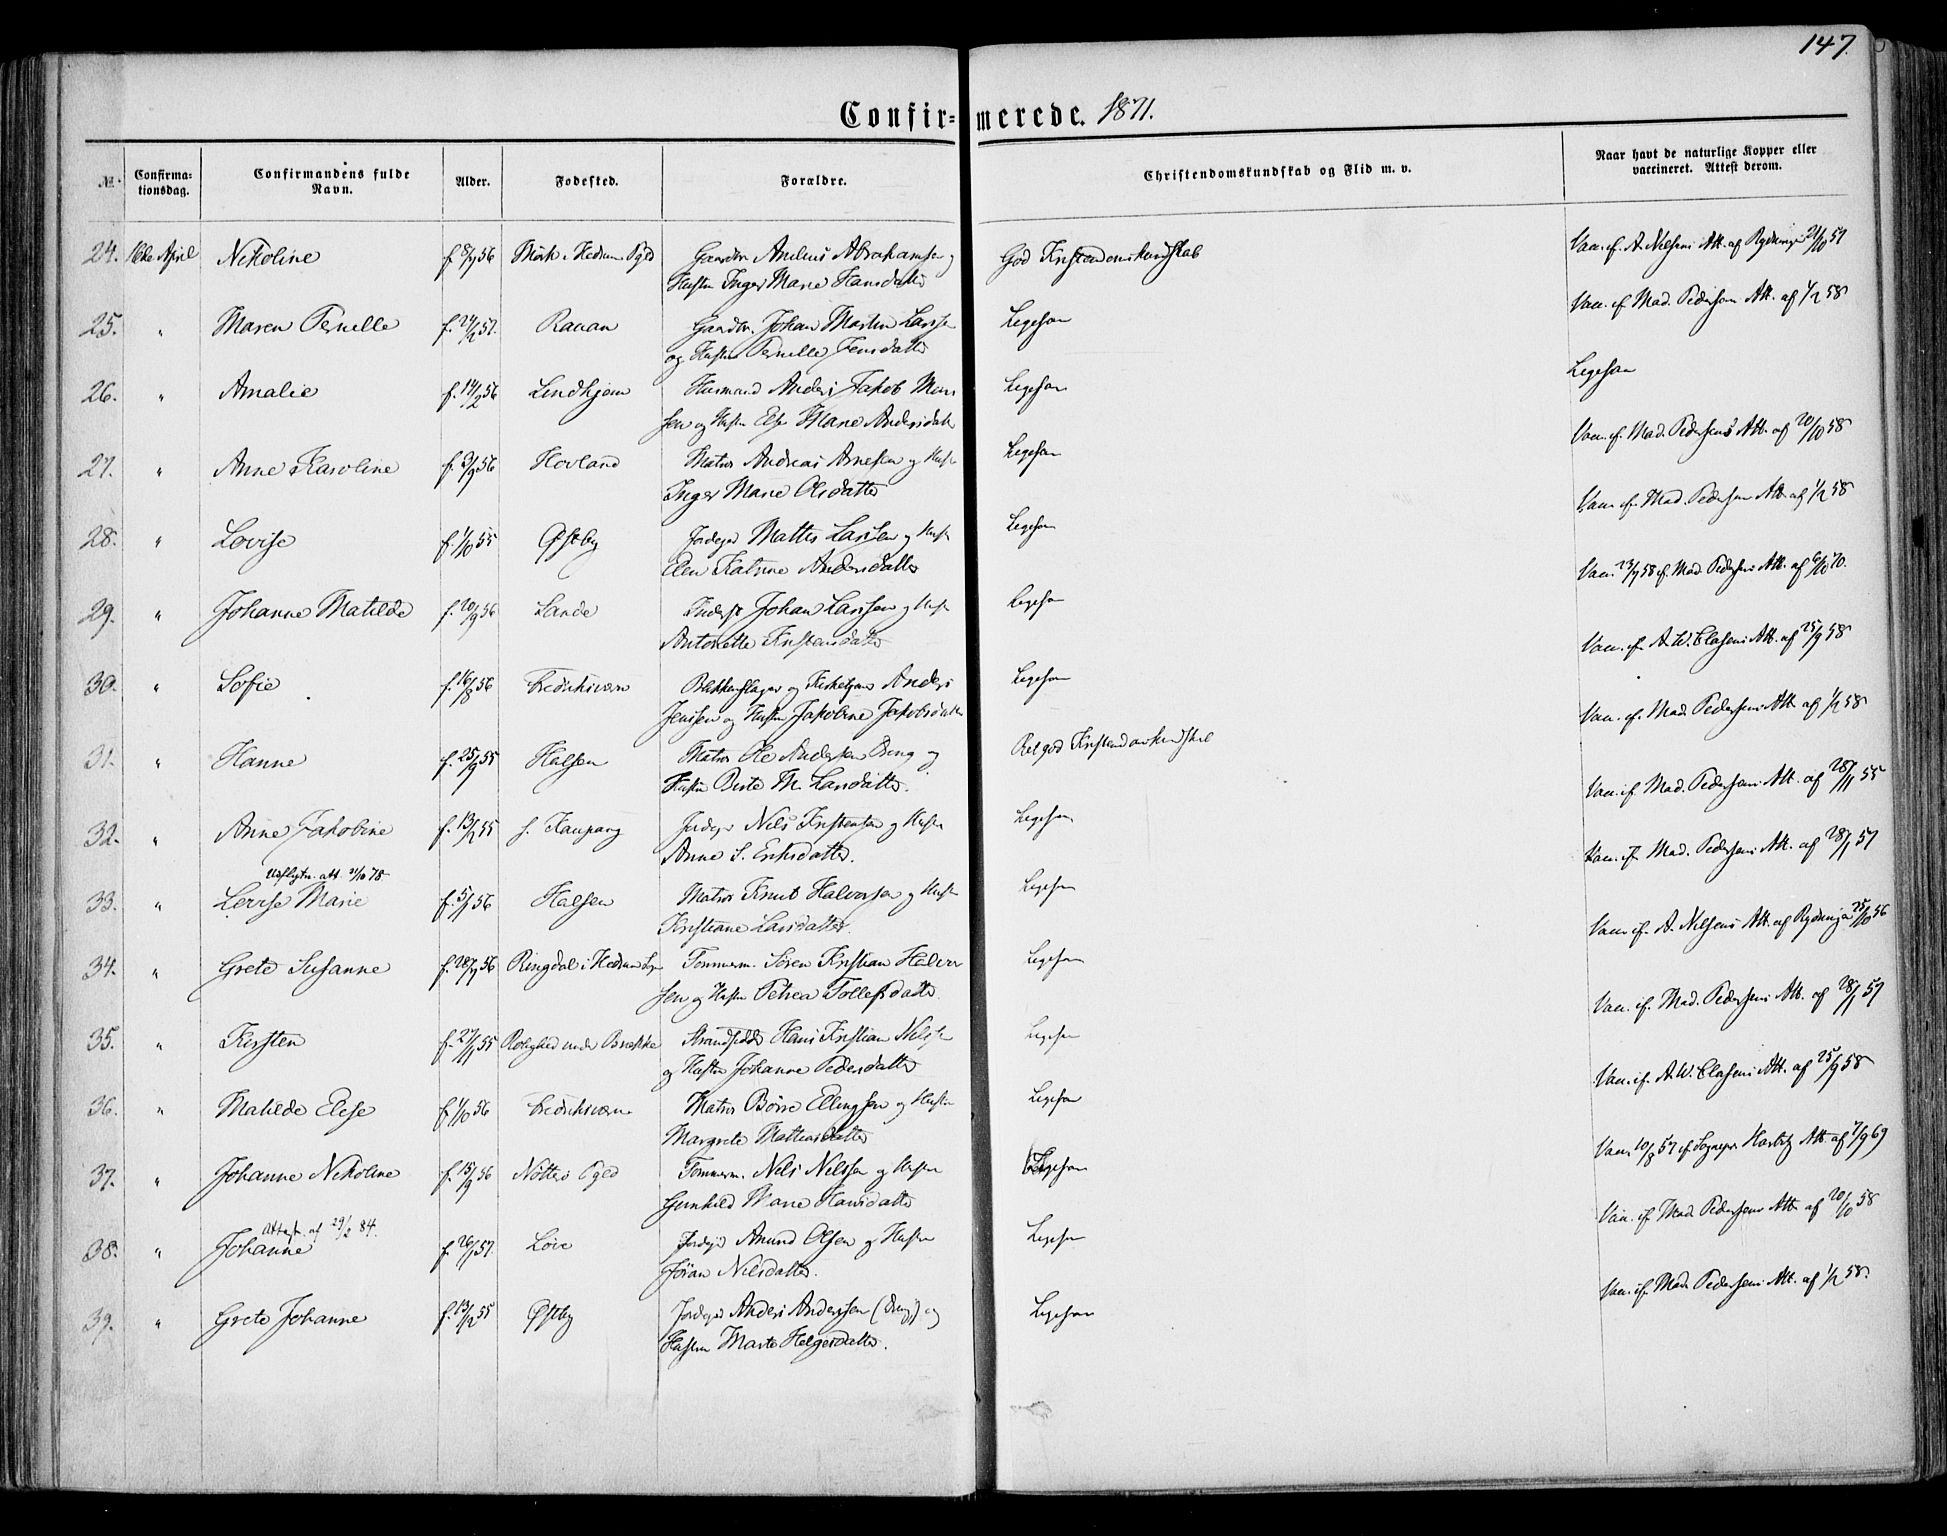 147.
Confirmerede. 1871.
№. Confirmationsdag. Confirmandens fulde Navn. Alder. Fødested. Forældre. Christendomskundskab og Flid m. v. Naar havt de naturlige Kopper eller vaccineret. Attest derom.
24. 16de April Nikoline f. 8/9 56 Mørk i Hedrum Pgld Gaardbr. Anders Abrahamsen og God Kristendomskundskab Vacc. if. A. Nilsens Att. af 21/10 57
Hustru Inger Marie Hansdatter
25. " Maren Pernelle f. 24/2 57. Rauan Gaardbr. Johan Martin Larsen Ligesaa Vacc. if. Mad. Pedersens Att. af 1/2 58
og Hustru Pernelle Jensdatter
26. " Amalie f. 14/2 56 Lindhjem Husmand Anders Jakob Mons Ligesaa Ligesaa
sen og Hustru Else Marie Andersdatter
27. " Anne Karoline f. 3/9 56 Hovland Matros Andreas Arnesen og Hustru Ligesaa Vacc. if. Mad. Pedersens Att. af 20/10 58
Inger Marie Olsdatter
28. " Lovise f. 1/10 55 Østby Jordeier Mathis Larsen og Hustru Ligesaa Vacc. if. Mad. Pedersens Att. af 1/2 58
Elen Katrine Andersdatter
29. " Johanne Matilde f. 20/9 56 Lande Inderst Johan Larssen og Hustru Ligesaa Vacc. 23/9 58 if. Mad. Pedersens Att. af 6/10 70.
Antonette Kristensdatter
30. " Sofie f. 16/8 56 Fredriksværn Blikkenslager og Kirketjener Anders Ligesaa Vacc. if. A. W. Clasens Att. af 25/9 58
Jenssen og Hustru Jakobine Jakobsdatter
31. " Hanne f. 25/9 55 Halsen Matros Ole Andersen Breng og Rel god Kristendomskundskab Vacc. if. Mad. Pedersens Att. af 1/2 58
Hustru Berte M. Larsdatter.
32. " Anne Jakobine f. 13/2 55 s. Kaupang Jordeier Nils Kristensen og Hustru Ligesaa Vacc. if. Mad. Pedersens Att. af 28/11 55
Anne S. Eriksdatter.
Udflytn. att. 21/10 78
33. " Lovise Marie f. 5/1 56 Halsen Matros Knut Halvorsen og Hustru Ligesaa Vacc. if. Mad. Pedersens Att. af 28/1 57
Kristiane Larsdatter.
34. " Grete Susanne f. 28/7 56 Ringdal i Hedrum Tømmerm. Søren Kristian Halvor Ligesaa Vacc. if. A. Nilsens Att. af 25/10 56
sen og Hustru Petrea Tollefsdatter.
35. " Kirsten f. 27/1 55 Rolighed under Brække Strandsidder Hans Kristian Nilsen Ligesaa Vacc. if. Mad. Pedersens Att. af 28/1 57
og Hustru Johanne Pedersdatter
36. " Matilde Elise f. 1/10 56 Fredriksværn Matros Børre Ellingsen og Hustru Ligesaa Vacc. if. A. W. Clasens Att. af 25/9 58
Margrete Mathiasdatter
37. " Johanne Nikoline f. 15/9 56 Nøtterø Pgld Tømmerm. Nils Nilssen og Hustru Ligesaa Vacc. 10/8 57 if. Sognepr. Att. af 7/9 69
Gunhild Marie Hansdatter
Attest af 29/2 84.
38. " Johanne f. 26/1 57. Løve Jordeier Amund Olsen og Hustru Ligesaa Vacc. if. Mad. Pedersens Att. af 20/10 58
Jøran Nilsdatter.
39. " Grete Johanne f. 13/2 55 Østby Jordeier Anders Anderssen og Ligesaa Vacc. if. Mad. Pedersens Att. af 1/2 58.
Hustru Marte Helgesdatter.